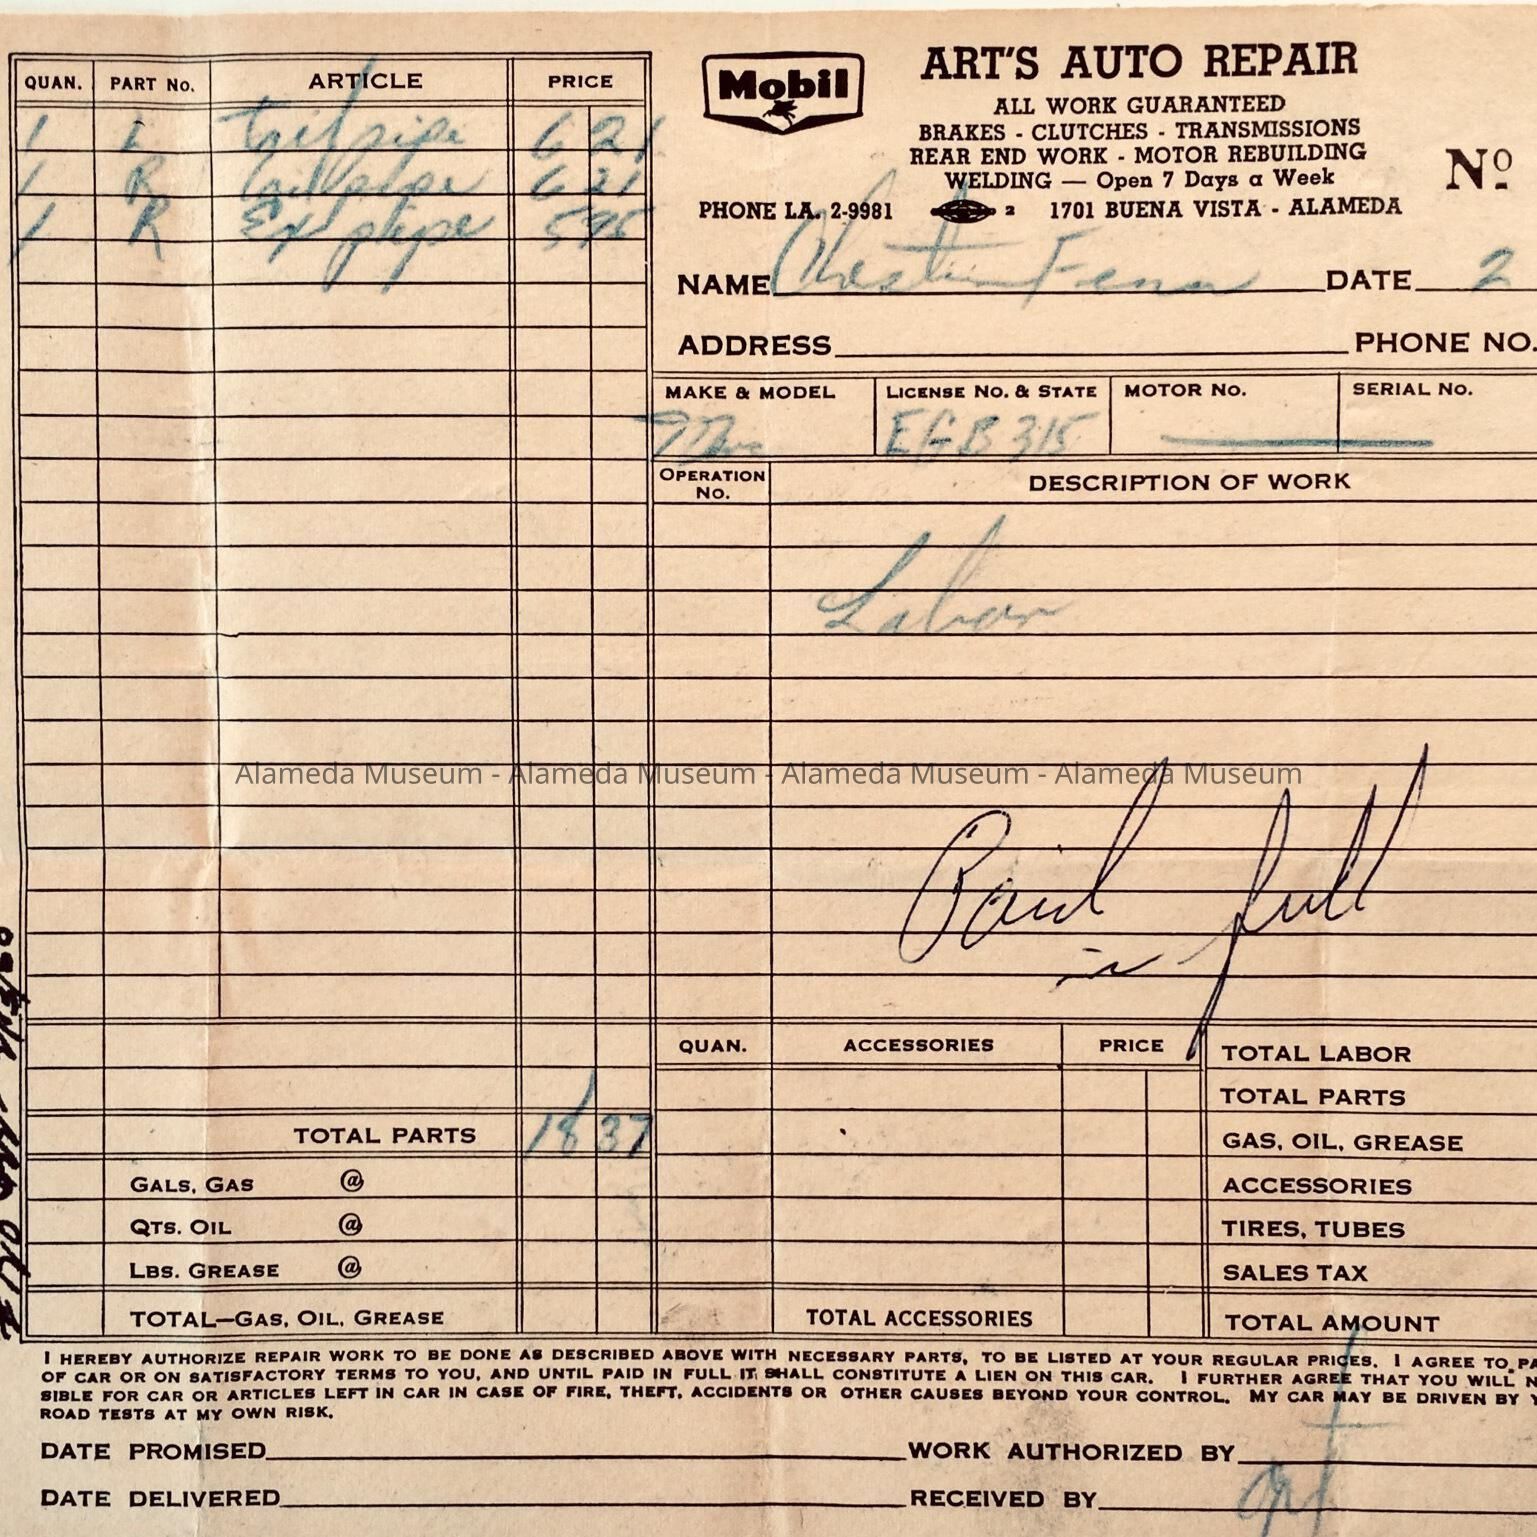 QUAN. PART No. ARTICLE PRICE
1 L tail pipe 6 21
1 R tail pipe 6 21
1 R Ex pipe 5 95
Mobil
ART'S AUTO REPAIR
ALL WORK GUARANTEED
BRAKES - CLUTCHES - TRANSMISSIONS
REAR END WORK - MOTOR REBUILDING
WELDING — Open 7 Days a Week
Nº
PHONE LA. 2-9981 2 1701 BUENA VISTA - ALAMEDA
NAME DATE 2
ADDRESS PHONE NO.
MAKE & MODEL LICENSE No. & STATE MOTOR No. SERIAL No.
EGB 315
OPERATION No. DESCRIPTION OF WORK
Labor
Alameda Museum - Alameda Museum - Alameda Museum - Alameda Museum
Paid in full
QUAN. ACCESSORIES PRICE
TOTAL LABOR
TOTAL PARTS
GAS, OIL, GREASE
ACCESSORIES
TIRES, TUBES
SALES TAX
TOTAL AMOUNT
TOTAL PARTS 18 37
GALS, GAS @
QTS. OIL @
LBS. GREASE @
TOTAL—GAS, OIL, GREASE
TOTAL ACCESSORIES
I HEREBY AUTHORIZE REPAIR WORK TO BE DONE AS DESCRIBED ABOVE WITH NECESSARY PARTS, TO BE LISTED AT YOUR REGULAR PRICES. I AGREE TO PA
OF CAR OR ON SATISFACTORY TERMS TO YOU, AND UNTIL PAID IN FULL IT SHALL CONSTITUTE A LIEN ON THIS CAR. I FURTHER AGREE THAT YOU WILL N
SIBLE FOR CAR OR ARTICLES LEFT IN CAR IN CASE OF FIRE, THEFT, ACCIDENTS OR OTHER CAUSES BEYOND YOUR CONTROL. MY CAR MAY BE DRIVEN BY Y
ROAD TESTS AT MY OWN RISK.
DATE PROMISED WORK AUTHORIZED BY
DATE DELIVERED RECEIVED BY